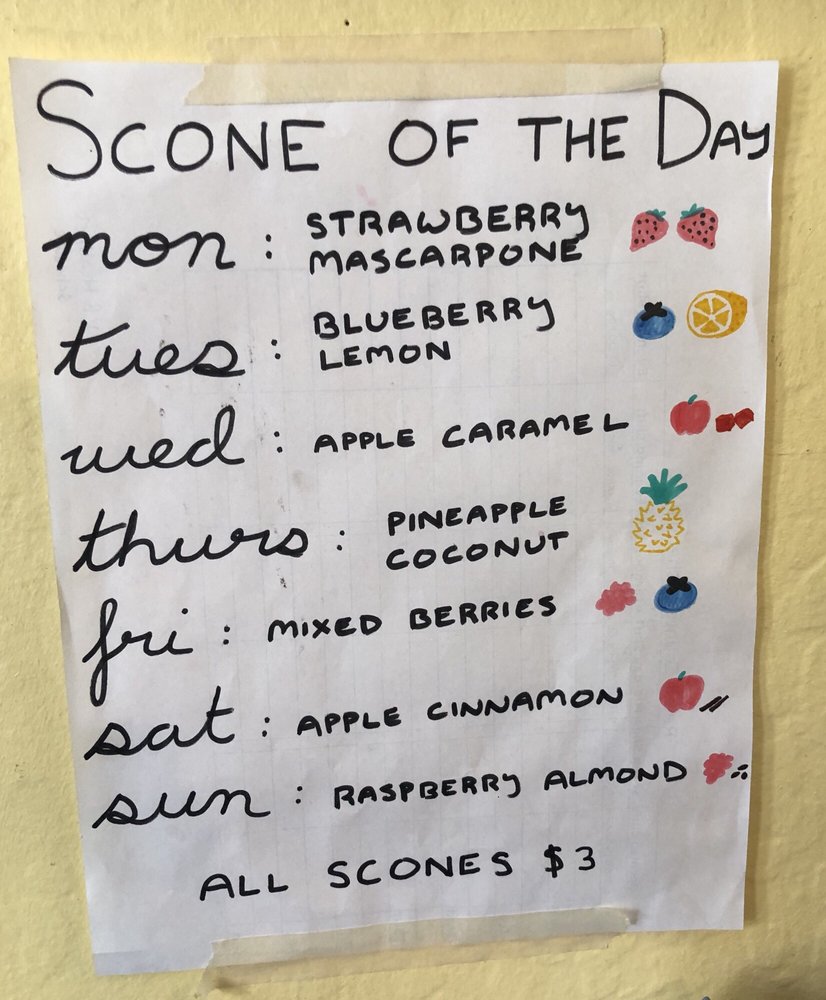 SCONE OF THE DAY
mon : STRAWBERRY
MASCARPONE
tues : BLUEBERRY
LEMON
wed : APPLE CARAMEL
thurs : PINEAPPLE
COCONUT
fri : MIXED BERRIES
sat : APPLE CINNAMON
sun : RASPBERRY ALMOND
ALL SCONES $3